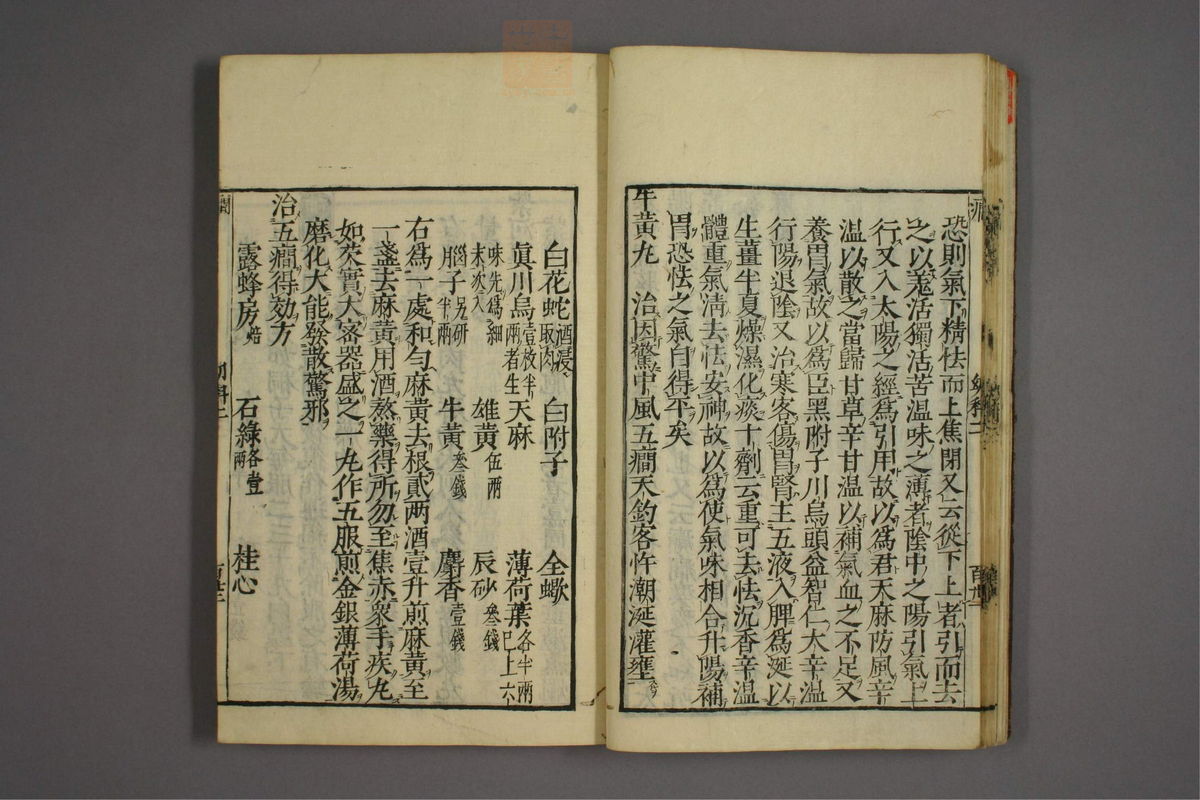 恐則氣下精怯而上焦閉又云從下上者引而去
之以羗活獨活苦温味之薄者陰中之陽引氣上
行又入太陽之經爲引用故以爲君天麻防風辛
温以散之當歸甘草辛甘温以補氣血之不足又
養胃氣故以爲臣黑附子川烏頭益智仁大辛温
行陽退陰又治寒客傷胃腎主五液入脾爲涎以
生薑半夏燥濕化痰十劑云重可去怯沉香辛温
體重氣淸去怯安神故以爲使氣味相合升陽補
胃恐怯之氣自得平矣
牛黃丸　治因驚中風五癎天釣客忤潮涎灌壅
白花蛇酒浸取肉　白附子　全蠍
眞川烏壹枚半兩者生　天麻　薄荷葉各半兩已上六
味先爲細末次入　雄黃伍兩　辰砂叁錢
腦子半兩另研　牛黃叁錢　麝香壹錢
右爲一處和勻麻黃去根貳两酒壹升煎麻黃至
一盞去麻黃用酒熬藥得所勿至焦赤衆手疾丸
如芡實大密器盛之一丸作五服煎金銀薄荷湯
磨化大能發散驚邪
治五癎得効方
露蜂房焙　石綠各壹兩　桂心